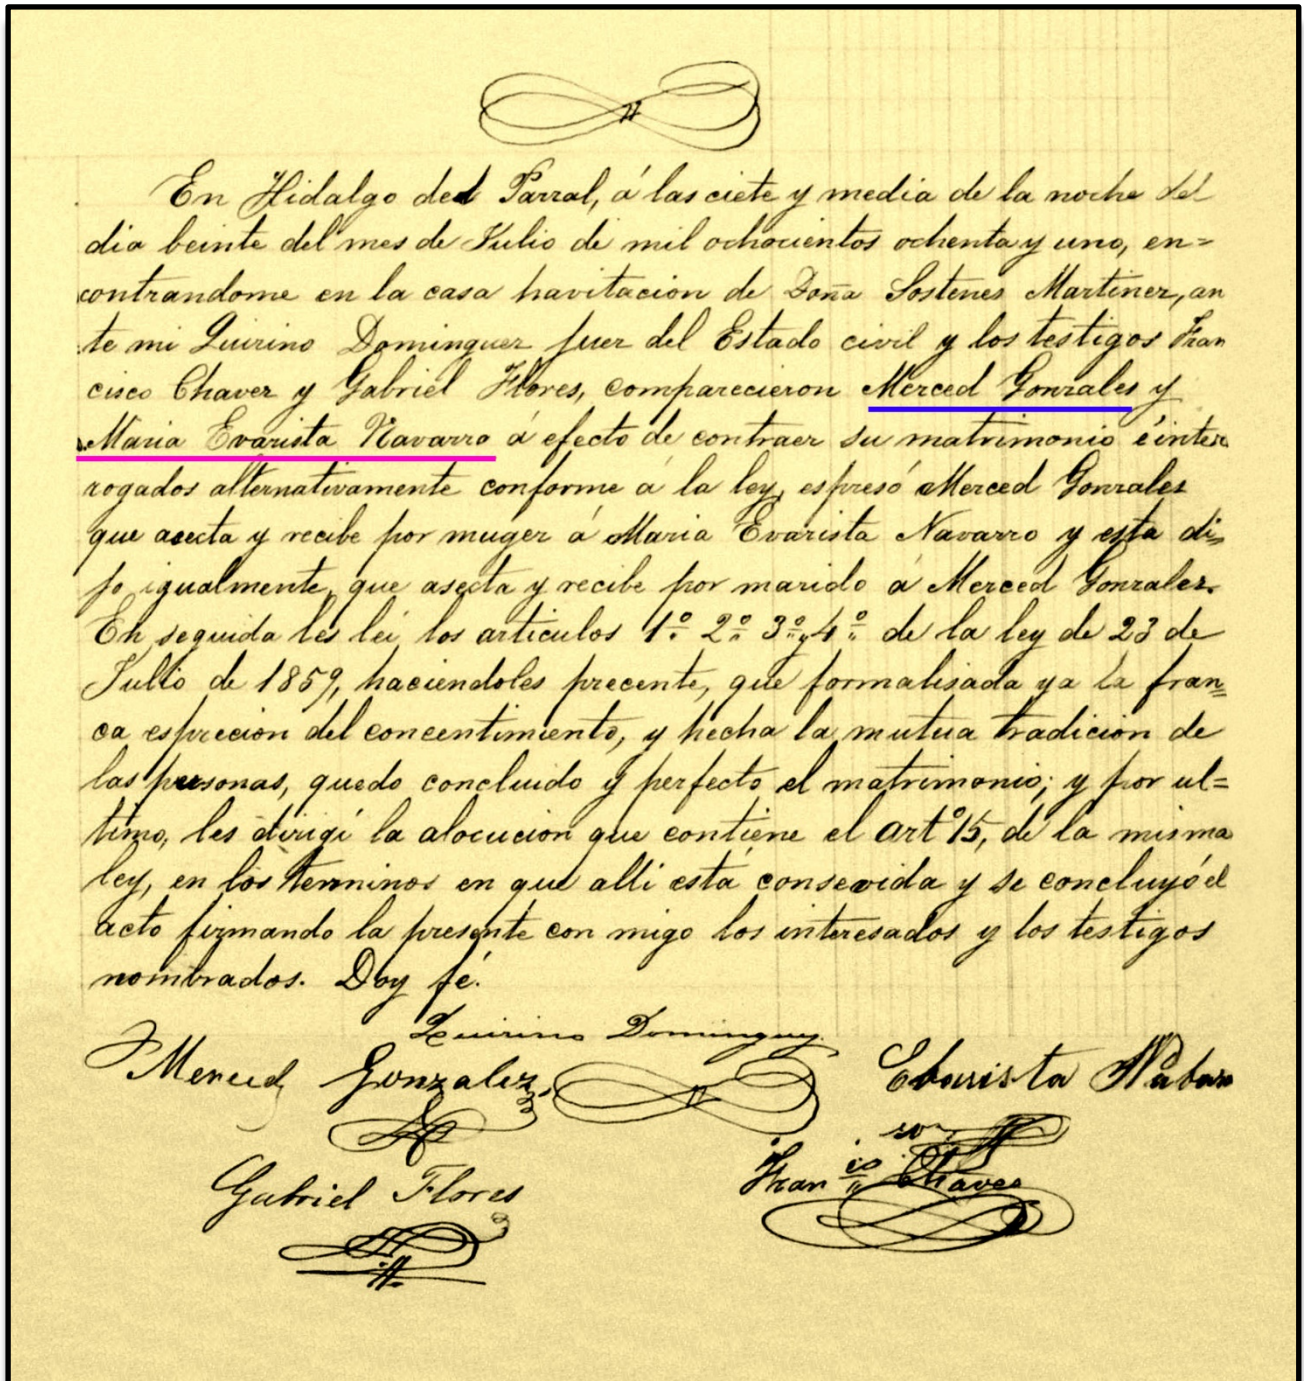 En Hidalgo del Parral, á las ciete y media de la noche del
dia beinte del mes de Julio de mil ochocientos ochenta y uno, en=
contrandome en la casa havitacion de Doña Sostenes Martinez, an
te mi Quirino Dominguez juez del Estado civil y los testigos Fran
cisco Chavez y Gabriel Flores, comparecieron Merced Gonzales y
Maria Evarista Navarro á efecto de contraer su matrimonio é inter
rogados alternativamente conforme á la ley, espresó Merced Gonzales
que asecta y recibe por muger á Maria Evarista Navarro y esta di=
jo igualmente, que asecta y recibe por marido á Merced Gonzales.
En seguida les lei los articulos 1º 2º 3º y 4º de la ley de 23 de
Julio de 1859, haciendoles precente, que formalisada ya la fran=
ca esprecion del concentimiento, y hecha la mutua tradicion de
las personas, quedo concluido y perfecto el matrimonio; y por ul=
timo, les dirigí la alocucion que contiene el artº 15, de la misma
ley, en los terminos en que alli está consevida y se concluyó el
acto firmando la presente con migo los interesados y los testigos
nombrados. Doy fé.
Quirino Dominguez
Merced Gonzalez
Ebarista Nabar
ro
Gabriel Flores
Franco Chavez